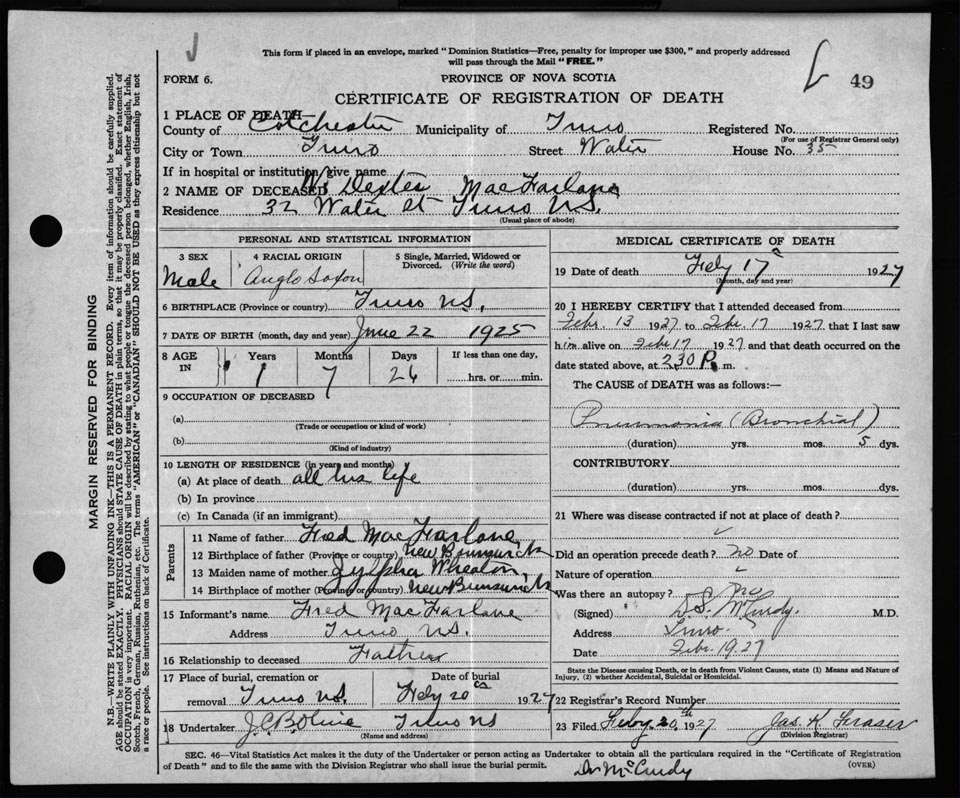 This form if placed in an envelope, marked "Dominion Statistics—Free, penalty for improper use $300," and properly addressed
will pass through the Mail "FREE."
FORM 6.
PROVINCE OF NOVA SCOTIA
49
CERTIFICATE OF REGISTRATION OF DEATH
1 PLACE OF DEATH
County of Colchester Municipality of Truro Registered No.
(For use of Registrar General only)
City or Town Truro Street Water House No. 35
If in hospital or institution, give name
2 NAME OF DECEASED Dexter MacFarlane
Residence 32 Water St Truro N.S.
(Usual place of abode)
PERSONAL AND STATISTICAL INFORMATION
3 SEX 4 RACIAL ORIGIN 5 Single, Married, Widowed or
Divorced. (Write the word)
Male Anglo Saxon
6 BIRTHPLACE (Province or country) Truro N.S.
7 DATE OF BIRTH (month, day and year) June 22 1925
8 AGE IN Years Months Days If less than one day,
1 7 26 hrs. or min.
9 OCCUPATION OF DECEASED
(a)
(Trade or occupation or kind of work)
(b)
(Kind of industry)
10 LENGTH OF RESIDENCE (in years and months)
(a) At place of death all his life
(b) In province
(c) In Canada (if an immigrant)
Parents
11 Name of father Fred MacFarlane
12 Birthplace of father (Province or country) New Brunswick
13 Maiden name of mother Wheaton
14 Birthplace of mother (Province or country) New Brunswick
15 Informant's name Fred MacFarlane
Address Truro N.S.
16 Relationship to deceased Father
17 Place of burial, cremation or Date of burial
removal Truro N.S. Feby 20 1927
18 Undertaker Truro NS
(Name and address)
MEDICAL CERTIFICATE OF DEATH
19 Date of death Feby 17 1927
(Month, day and year)
20 I HEREBY CERTIFY that I attended deceased from
Febr. 13 1927 to Febr. 17 1927 that I last saw
him alive on Febr 17 1927 and that death occurred on the
date stated above, at 2.30 P. m.
The CAUSE of DEATH was as follows:—
Pneumonia (Bronchial)
(duration) yrs. mos. 5 dys.
CONTRIBUTORY
(duration) yrs. mos. dys.
21 Where was disease contracted if not at place of death?
Did an operation precede death? no Date of
Nature of operation
Was there an autopsy? no
(Signed) D.S. McCurdy. M.D.
Address Truro.
Date Febr. 19. 27
State the Disease causing Death, or in death from Violent Causes, state (1) Means and Nature of
Injury, (2) whether Accidental, Suicidal or Homicidal.
22 Registrar's Record Number
23 Filed Feby. 20th 1927 Jas. K. Fraser
(Division Registrar)
SEC. 46—Vital Statistics Act makes it the duty of the Undertaker or person acting as Undertaker to obtain all the particulars required in the "Certificate of Registration
of Death" and to file the same with the Division Registrar who shall issue the burial permit.
(OVER)
Dr McCurdy
MARGIN RESERVED FOR BINDING
N.B.—WRITE PLAINLY WITH UNFADING INK—THIS IS A PERMANENT RECORD. Every item of information should be carefully supplied.
AGE should be stated EXACTLY. PHYSICIANS should STATE CAUSE OF DEATH in plain terms, so that it may be properly classified. Exact statement of
OCCUPATION is very important. RACIAL ORIGIN will be described by stating to what people or tongue the deceased person belonged, whether English, Irish,
Scotch, French, German, Russian, Ruthenian, etc. The terms "AMERICAN" or "CANADIAN" SHOULD NOT BE USED as they express citizenship but not
a race or people. See instructions on back of Certificate.